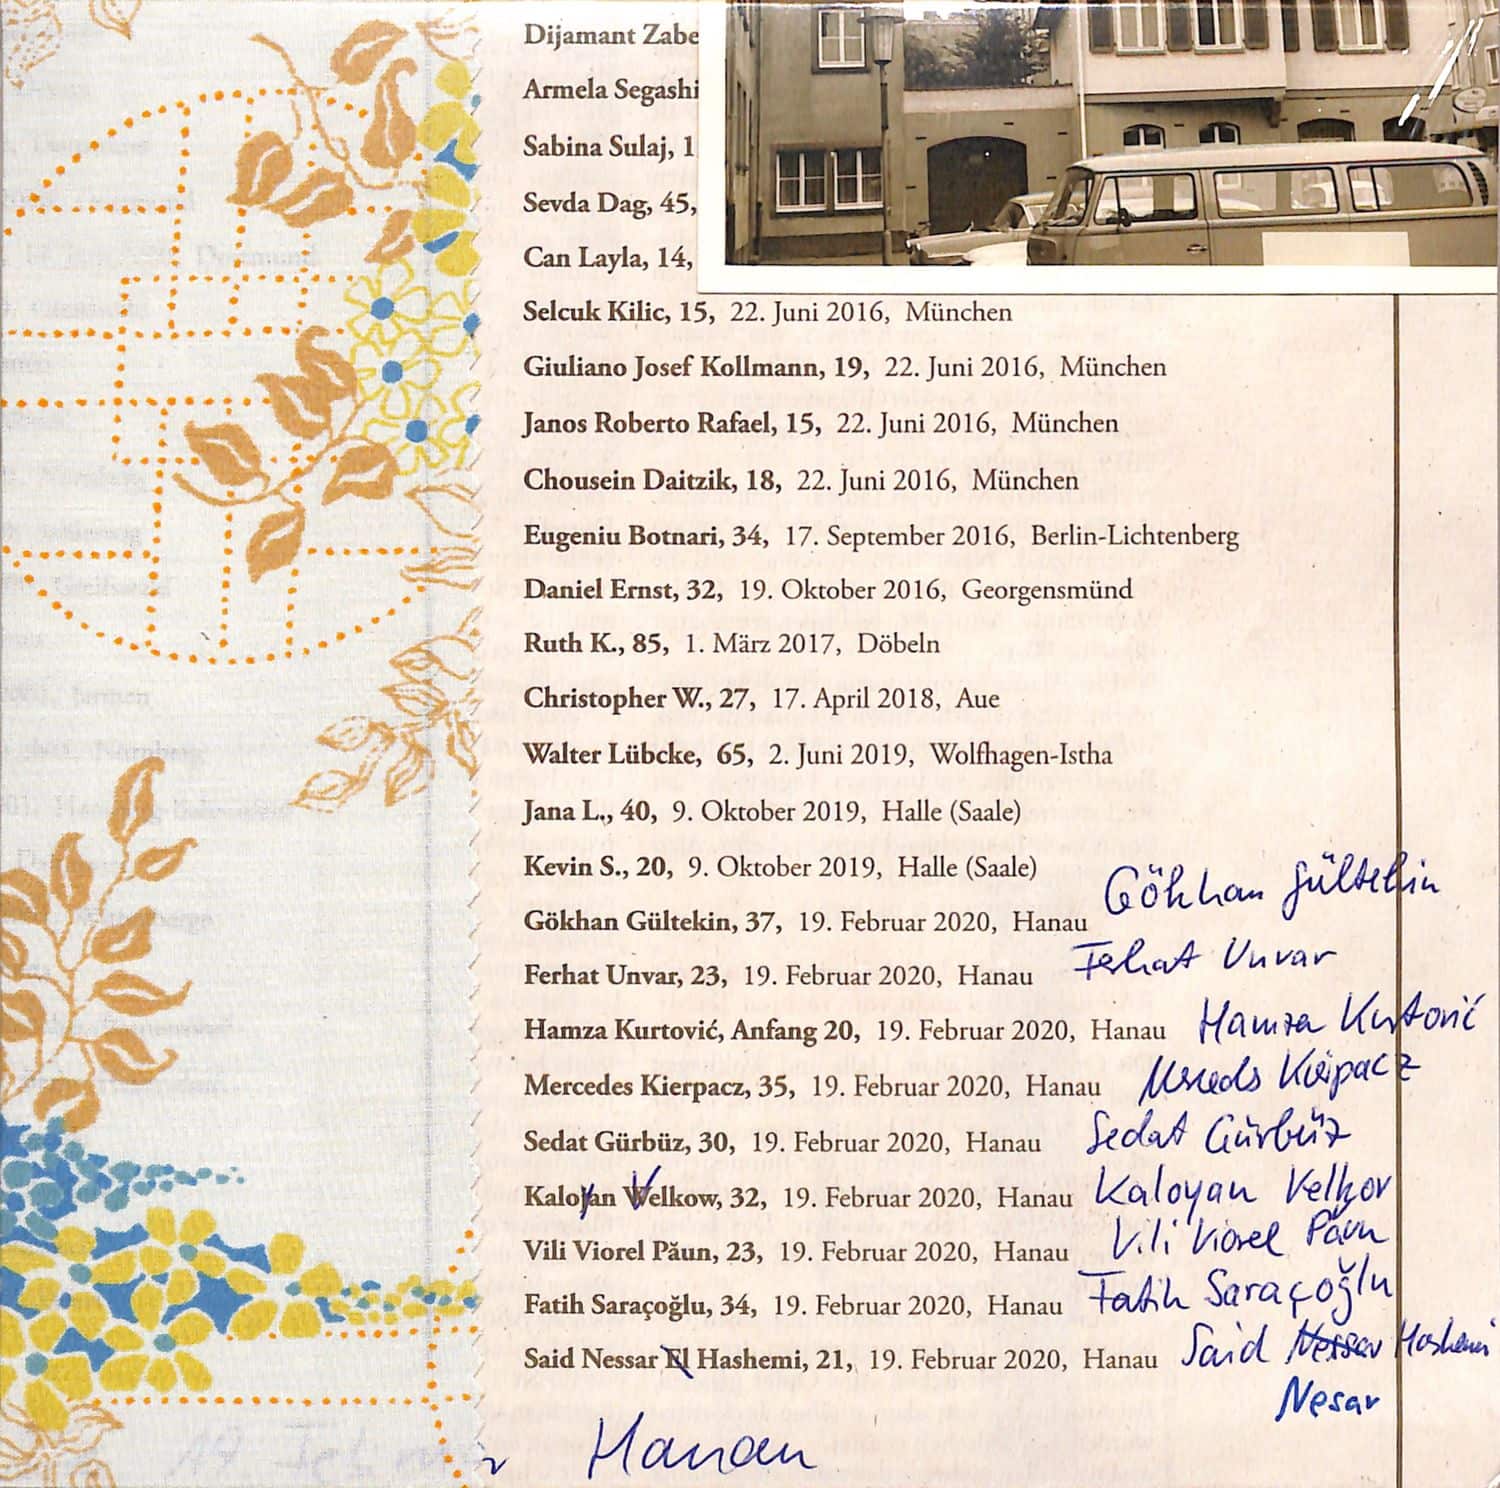 Dijamant Zabe
Armela Segashi
Sabina Sulaj, 1
Sevda Dag, 45,
Can Layla, 14,
Selcuk Kilic, 15, 22. Juni 2016, München
Giuliano Josef Kollmann, 19, 22. Juni 2016, München
Janos Roberto Rafael, 15, 22. Juni 2016, München
Chousein Daitzik, 18, 22. Juni 2016, München
Eugeniu Botnari, 34, 17. September 2016, Berlin-Lichtenberg
Daniel Ernst, 32, 19. Oktober 2016, Georgensmünd
Ruth K., 85, 1. März 2017, Döbeln
Christopher W., 27, 17. April 2018, Aue
Walter Lübcke, 65, 2. Juni 2019, Wolfhagen-Istha
Jana L., 40, 9. Oktober 2019, Halle (Saale)
Kevin S., 20, 9. Oktober 2019, Halle (Saale)
Gökhan Gültekin, 37, 19. Februar 2020, Hanau Gökhan Gültekin
Ferhat Unvar, 23, 19. Februar 2020, Hanau Ferhat Unvar
Hamza Kurtović, Anfang 20, 19. Februar 2020, Hanau Hamza Kurtović
Mercedes Kierpacz, 35, 19. Februar 2020, Hanau Mercedes Kierpacz
Sedat Gürbüz, 30, 19. Februar 2020, Hanau Sedat Gürbüz
Kalojan Welkow, 32, 19. Februar 2020, Hanau Kaloyan Velkov
Vili Viorel Păun, 23, 19. Februar 2020, Hanau Vili Viorel Păun
Fatih Saraçoğlu, 34, 19. Februar 2020, Hanau Fatih Saraçoğlu
Said Nessar El Hashemi, 21, 19. Februar 2020, Hanau Said Nessar Hashemi
Nesar
19. Februar Hanau